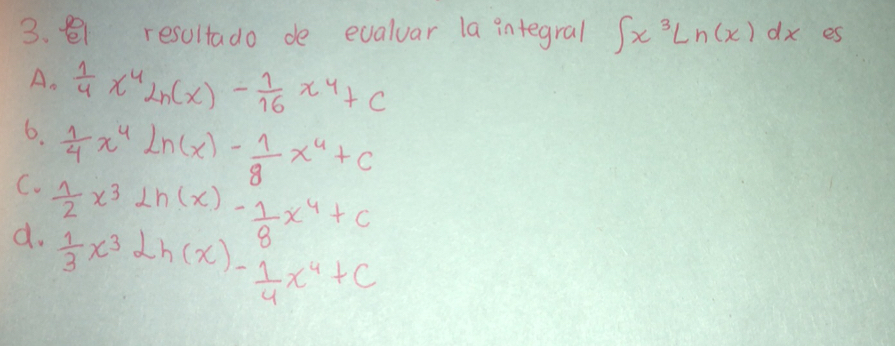 3. El resultado de evaluar la integral ∫x³Ln(x) dx es
A. 1/4 x⁴ Ln(x) - 1/16 x⁴ + C
b. 1/4 x⁴ Ln(x) - 1/8 x⁴ + C
C. 1/2 x³ Ln(x) - 1/8 x⁴ + C
d. 1/3 x³ Ln(x) - 1/4 x⁴ + C